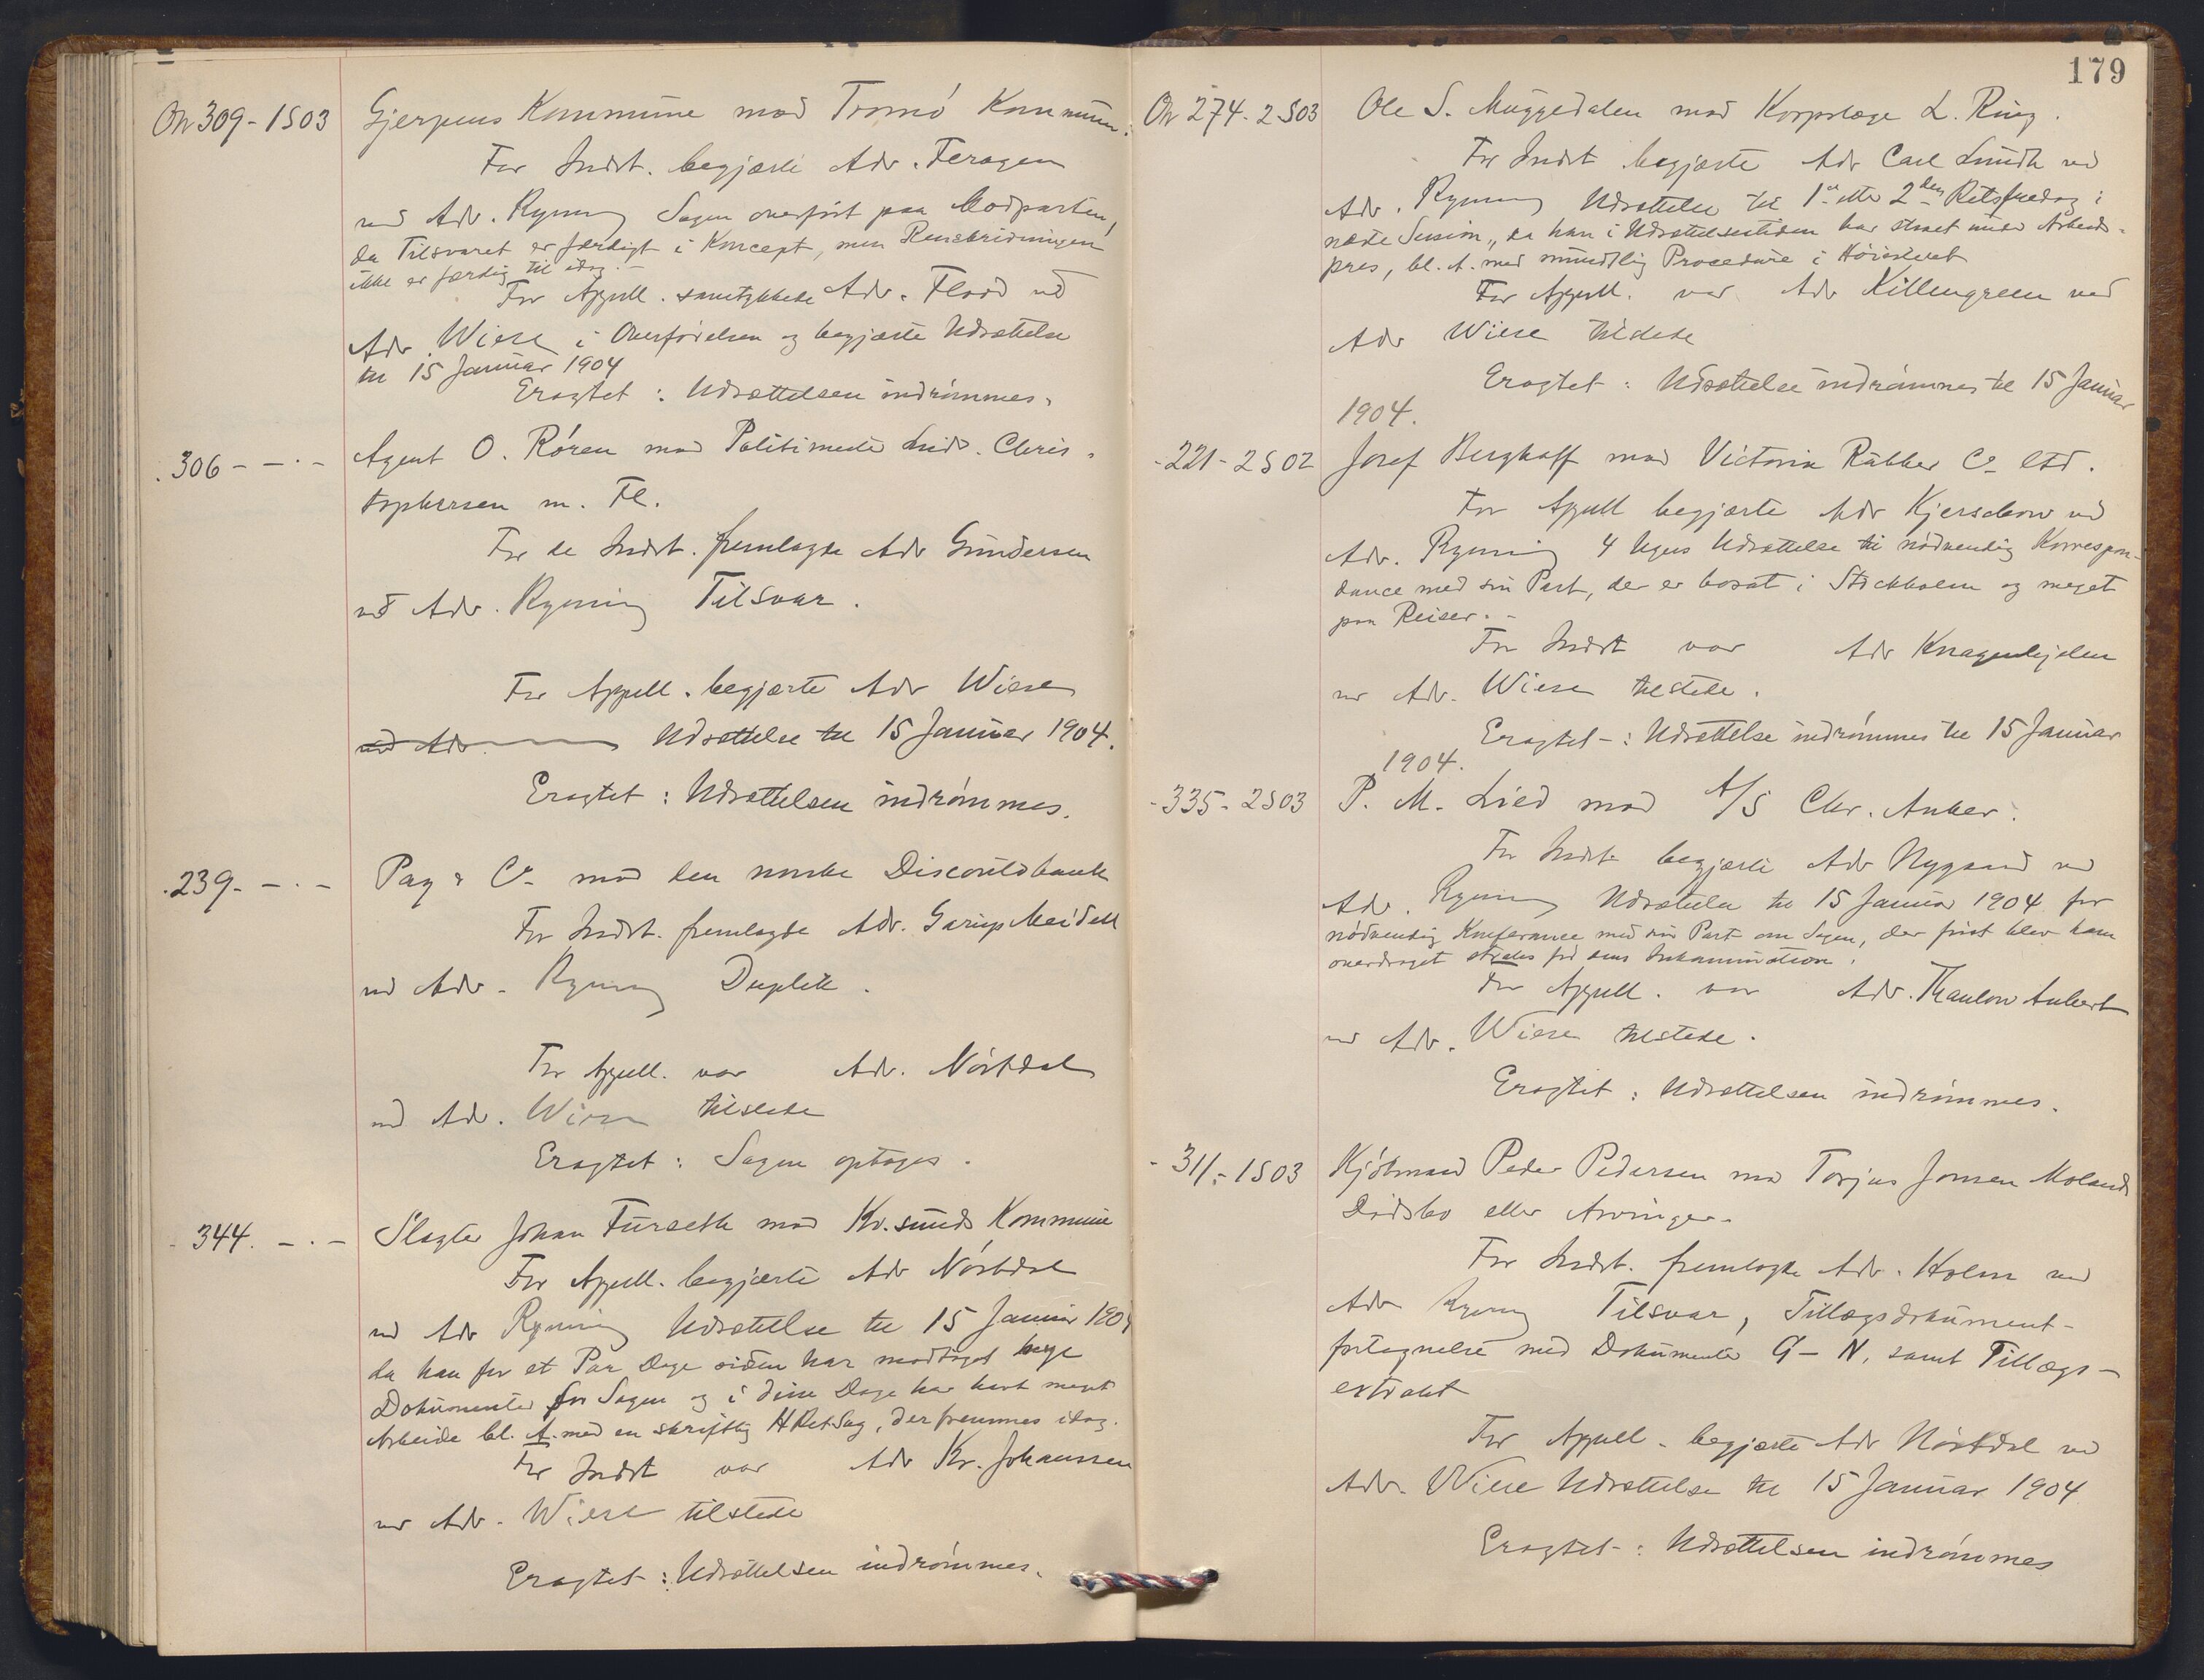 On 309-1S03 Gjerpens Kommune mod Tromö Kommune.
For Indst. begjærte Adv. Feragen
ved Adv. Ryning Sagen overført paa Modparten,
da Tilsvaret er færdigt i Koncept, men Renskrivningen
ikke er færdig til idag.-
For Appell. samtykkede Adv. Flood ved
Adv. Wiese i Overførelsen og begjærte Udsættelse
til 15 Januar 1904
Eragtet: Udsættelsen indrømmes.
.306 - - . - Agent O. Røren mod Politimester Chris-
tophersen m. Fl.
For de Indst. fremlagde Adv Gundersen
ved Adv. Ryning Tilsvar.
For Appell. begjærte Adv Wiese
ved Adv. Udsættelse til 15 Januar 1904.
Eragtet: Udsættelsen indrømmes.
.239. - . - Pay & Co mod den norske Discontobank
For Indst. fremlagde Adv. Garup Meidell
ved Adv. Ryning Duplik.
For Appell. var Adv. Nörstdal
ved Adv. Wiese tilstede
Eragtet: Sagen optages.
. 344. - . - Slagter Johan Furseth mod Kr.sunds Kommune
For Appell. begjærte Adv Nörstdal
ved Adv Ryning Udsættelse til 15 Januar 1904
da han for et Par Dage siden har modtaget
Dokumenter for Sagen og i disse Dage har havt meget
Arbeide bl. A. med en skriftlig HRetsSag, der fremmes idag.
For Indst var Adv Kr. Johanssen
ved Adv. Wiese tilstede
Eragtet: Udsættelsen indrømmes.
179
On 274. 2S03 Ole S. Muggedalen mod Korpslæge L. Ring.
For Indst begjærte Adv Carl Lundh ved
Adv. Ryning Udsættelse til 1ste eller 2den Retsfredag i
næste Session, da han i Udsættelsestiden har staaet under Arbeids-
pres, bl. A. med mundtlig Procedure i Høiesteret
For Appell. var Adv Killengreen ved
Adv Wiese tilstede
Eragtet: Udsættelse indrømmes til 15 Januar
1904.
-221-2S02 Josef Berghoff mod Victoria Rubber Co Ltd.
For Appell begjærte Adv Kjerschow ved
Adv. Ryning 4 Ugers Udsættelse til nødvendig Korrespon-
dance med sin Part, der er bosat i Stockholm og meget
paa Reiser.-
For Indst var Adv Knagenhjelm
ved Adv. Wiese tilstede.
Eragtet-: Udsættelse indrømmes til 15 Januar
1904.
-335-2S03 P. M. Lied mod A/S Chr. Anker.
For Indst begjærte Adv Nygaard ved
Adv. Ryning Udsættelse til 15 Januar 1904 for
nødvendig Konferance med sin Part om Sagen, der først blev ham
overdraget strax før dens Inkamination.
For Appell. var Adv. Thaulow Aubert
ved Adv. Wiese tilstede.
Eragtet: Udsættelsen indrømmes.
-311.-1S03 Kjøbmand Peder Pedersen mod Torjus Jonsen Molands
Dødsbo eller Arvinger.
For Indst. fremlagde Adv. Holm ved
Adv Ryning Tilsvar, Tillægsdokument-
fortegnelse med Dokumenter G-N, samt Tillægs-
extrakt
For Appell. begjærte Adv Nörstdal ved
Adv. Wiese Udsættelse til 15 Januar 1904
Eragtet-: Udsættelsen indrømmes